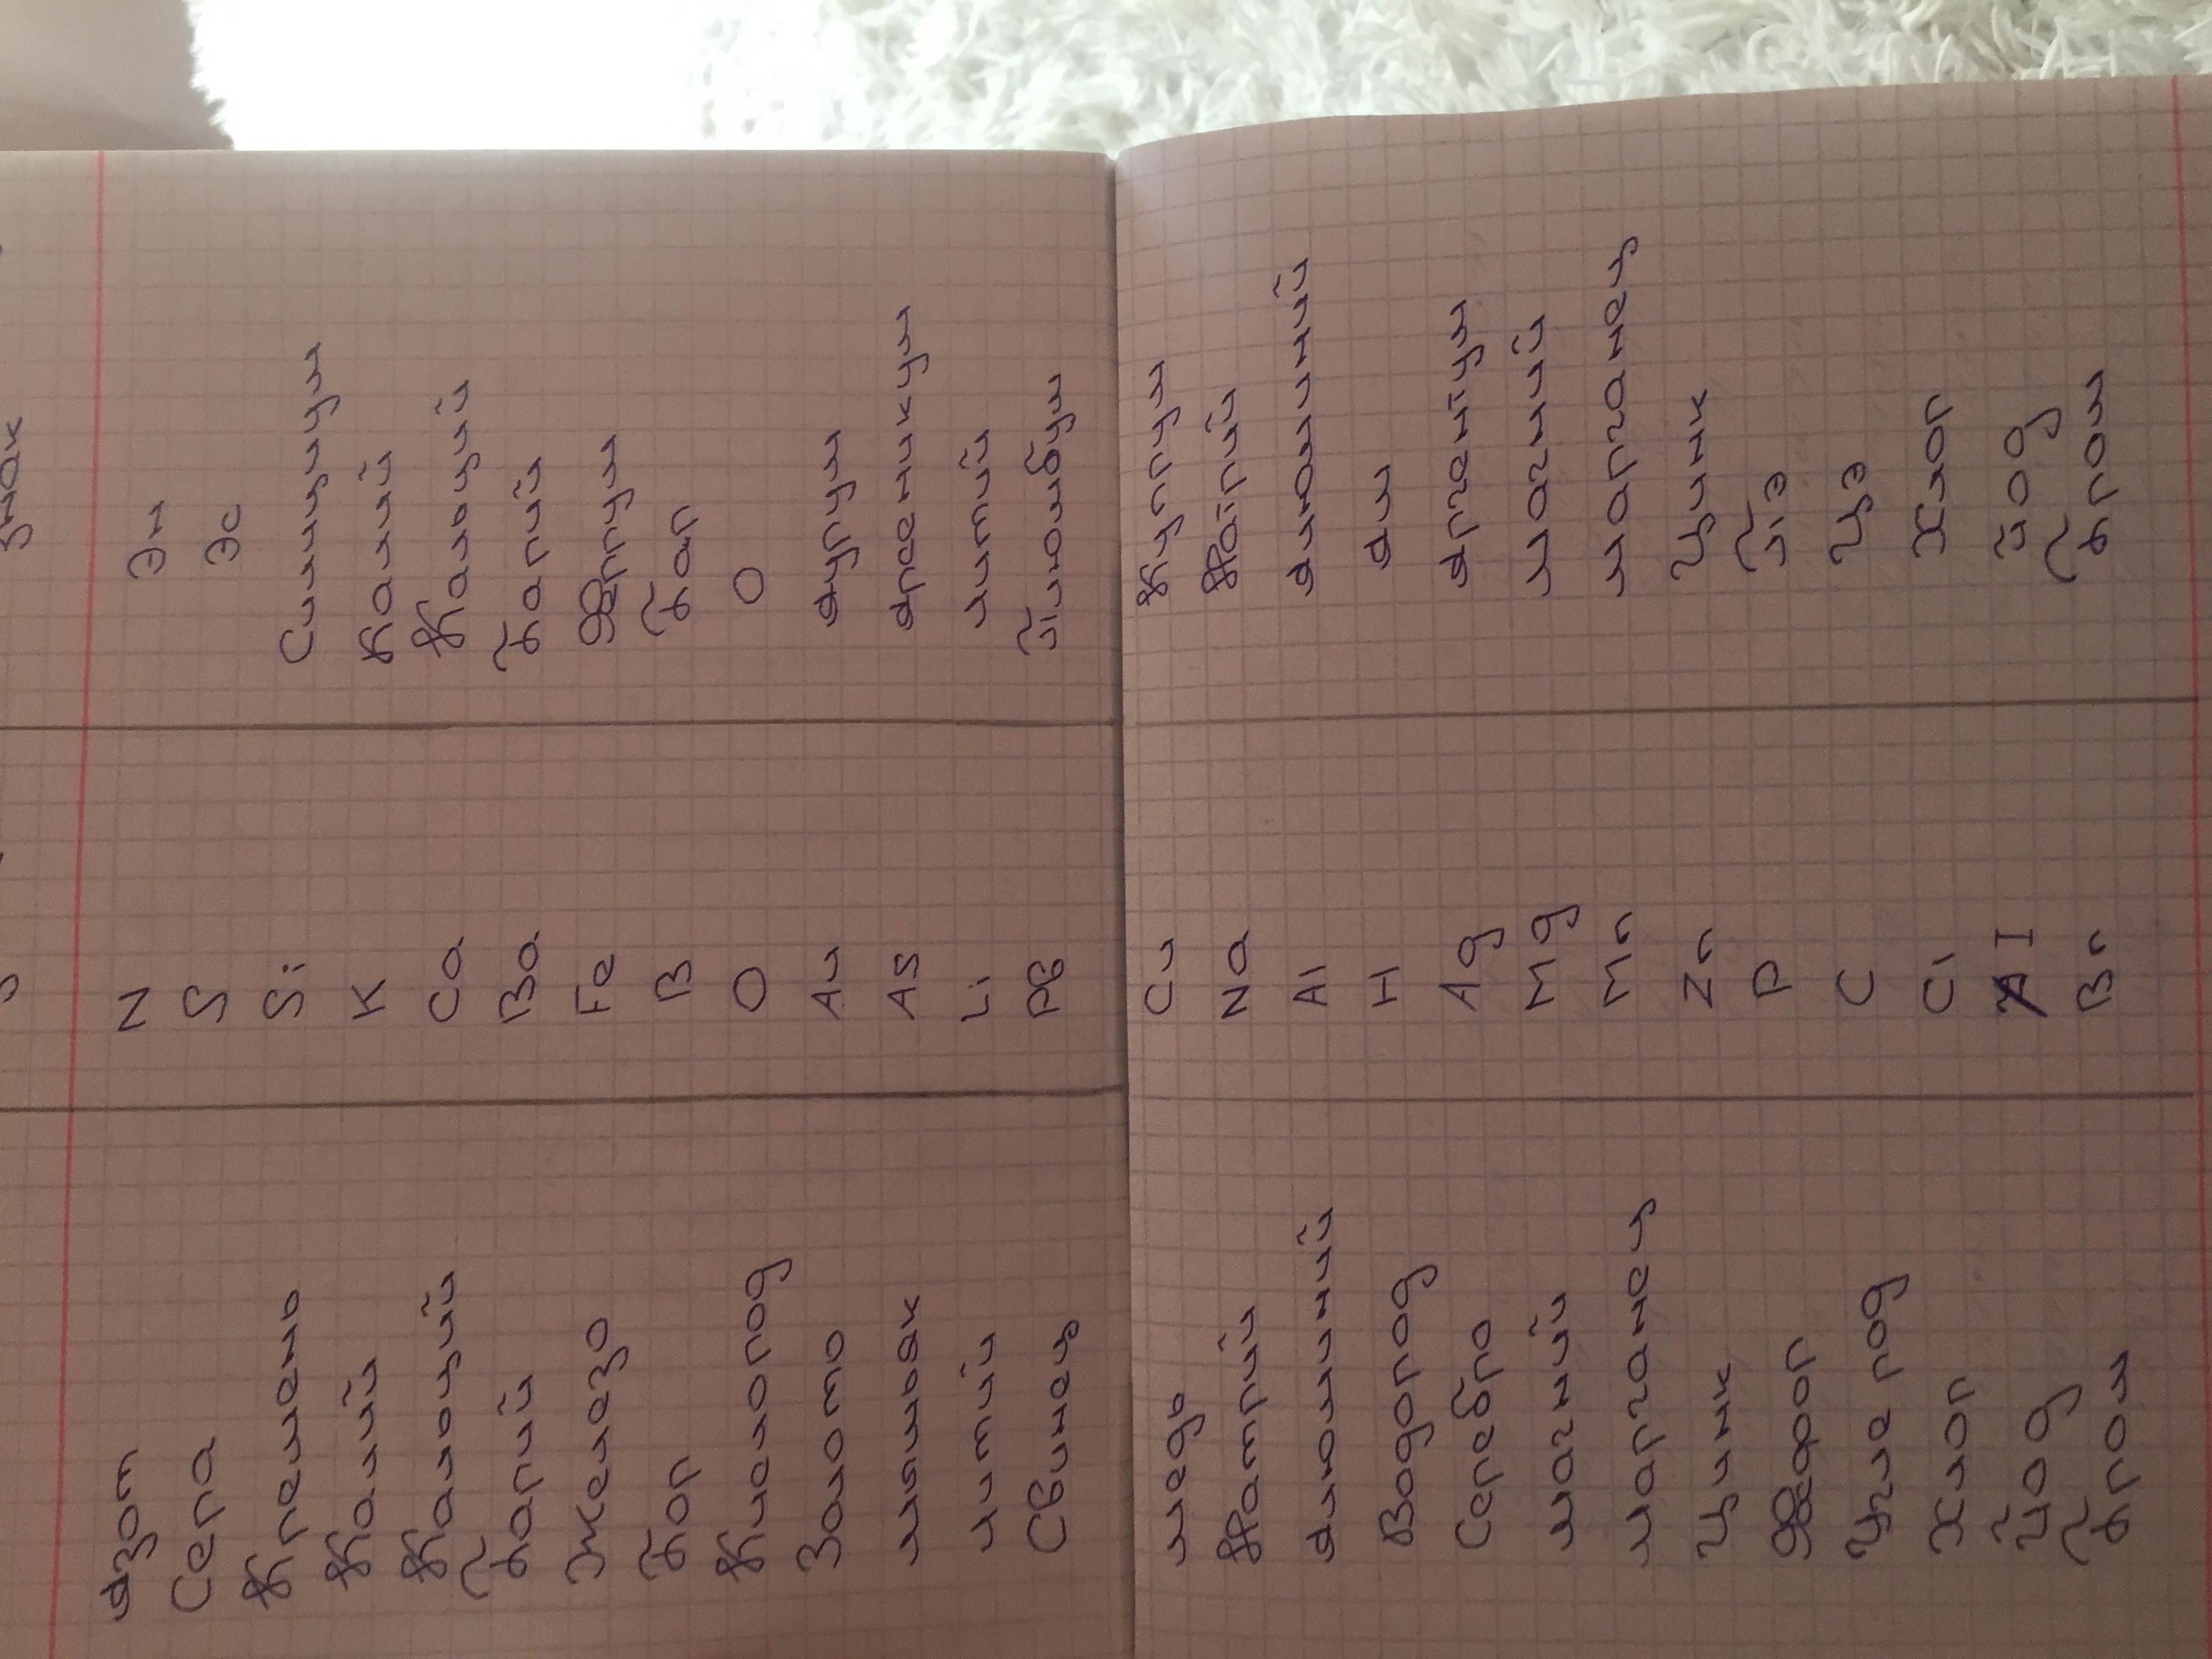 знак
Азот N Эн
Сера S Эс
Кремень Si Силициум
Калий K Калий
Кальций Ca Кальций
Барий Ba Барий
Железо Fe Феррум
Бор B Бар
Кислород O О
Золото Au Аурум
мышьяк As Арсеникум
литий Li литий
Свинец Pb Плюмбум
медь Cu Купрум
Натрий Na Натрий
Алюминий Al Алюминий
Водород H Аш
Серебро Ag Аргентум
магний Mg магний
марганец Mn марганец
Цинк Zn Цинк
Фосфор P Пэ
Угле род C Цэ
Хлор Cl Хлор
Йод I Йод
Бром Br Бром